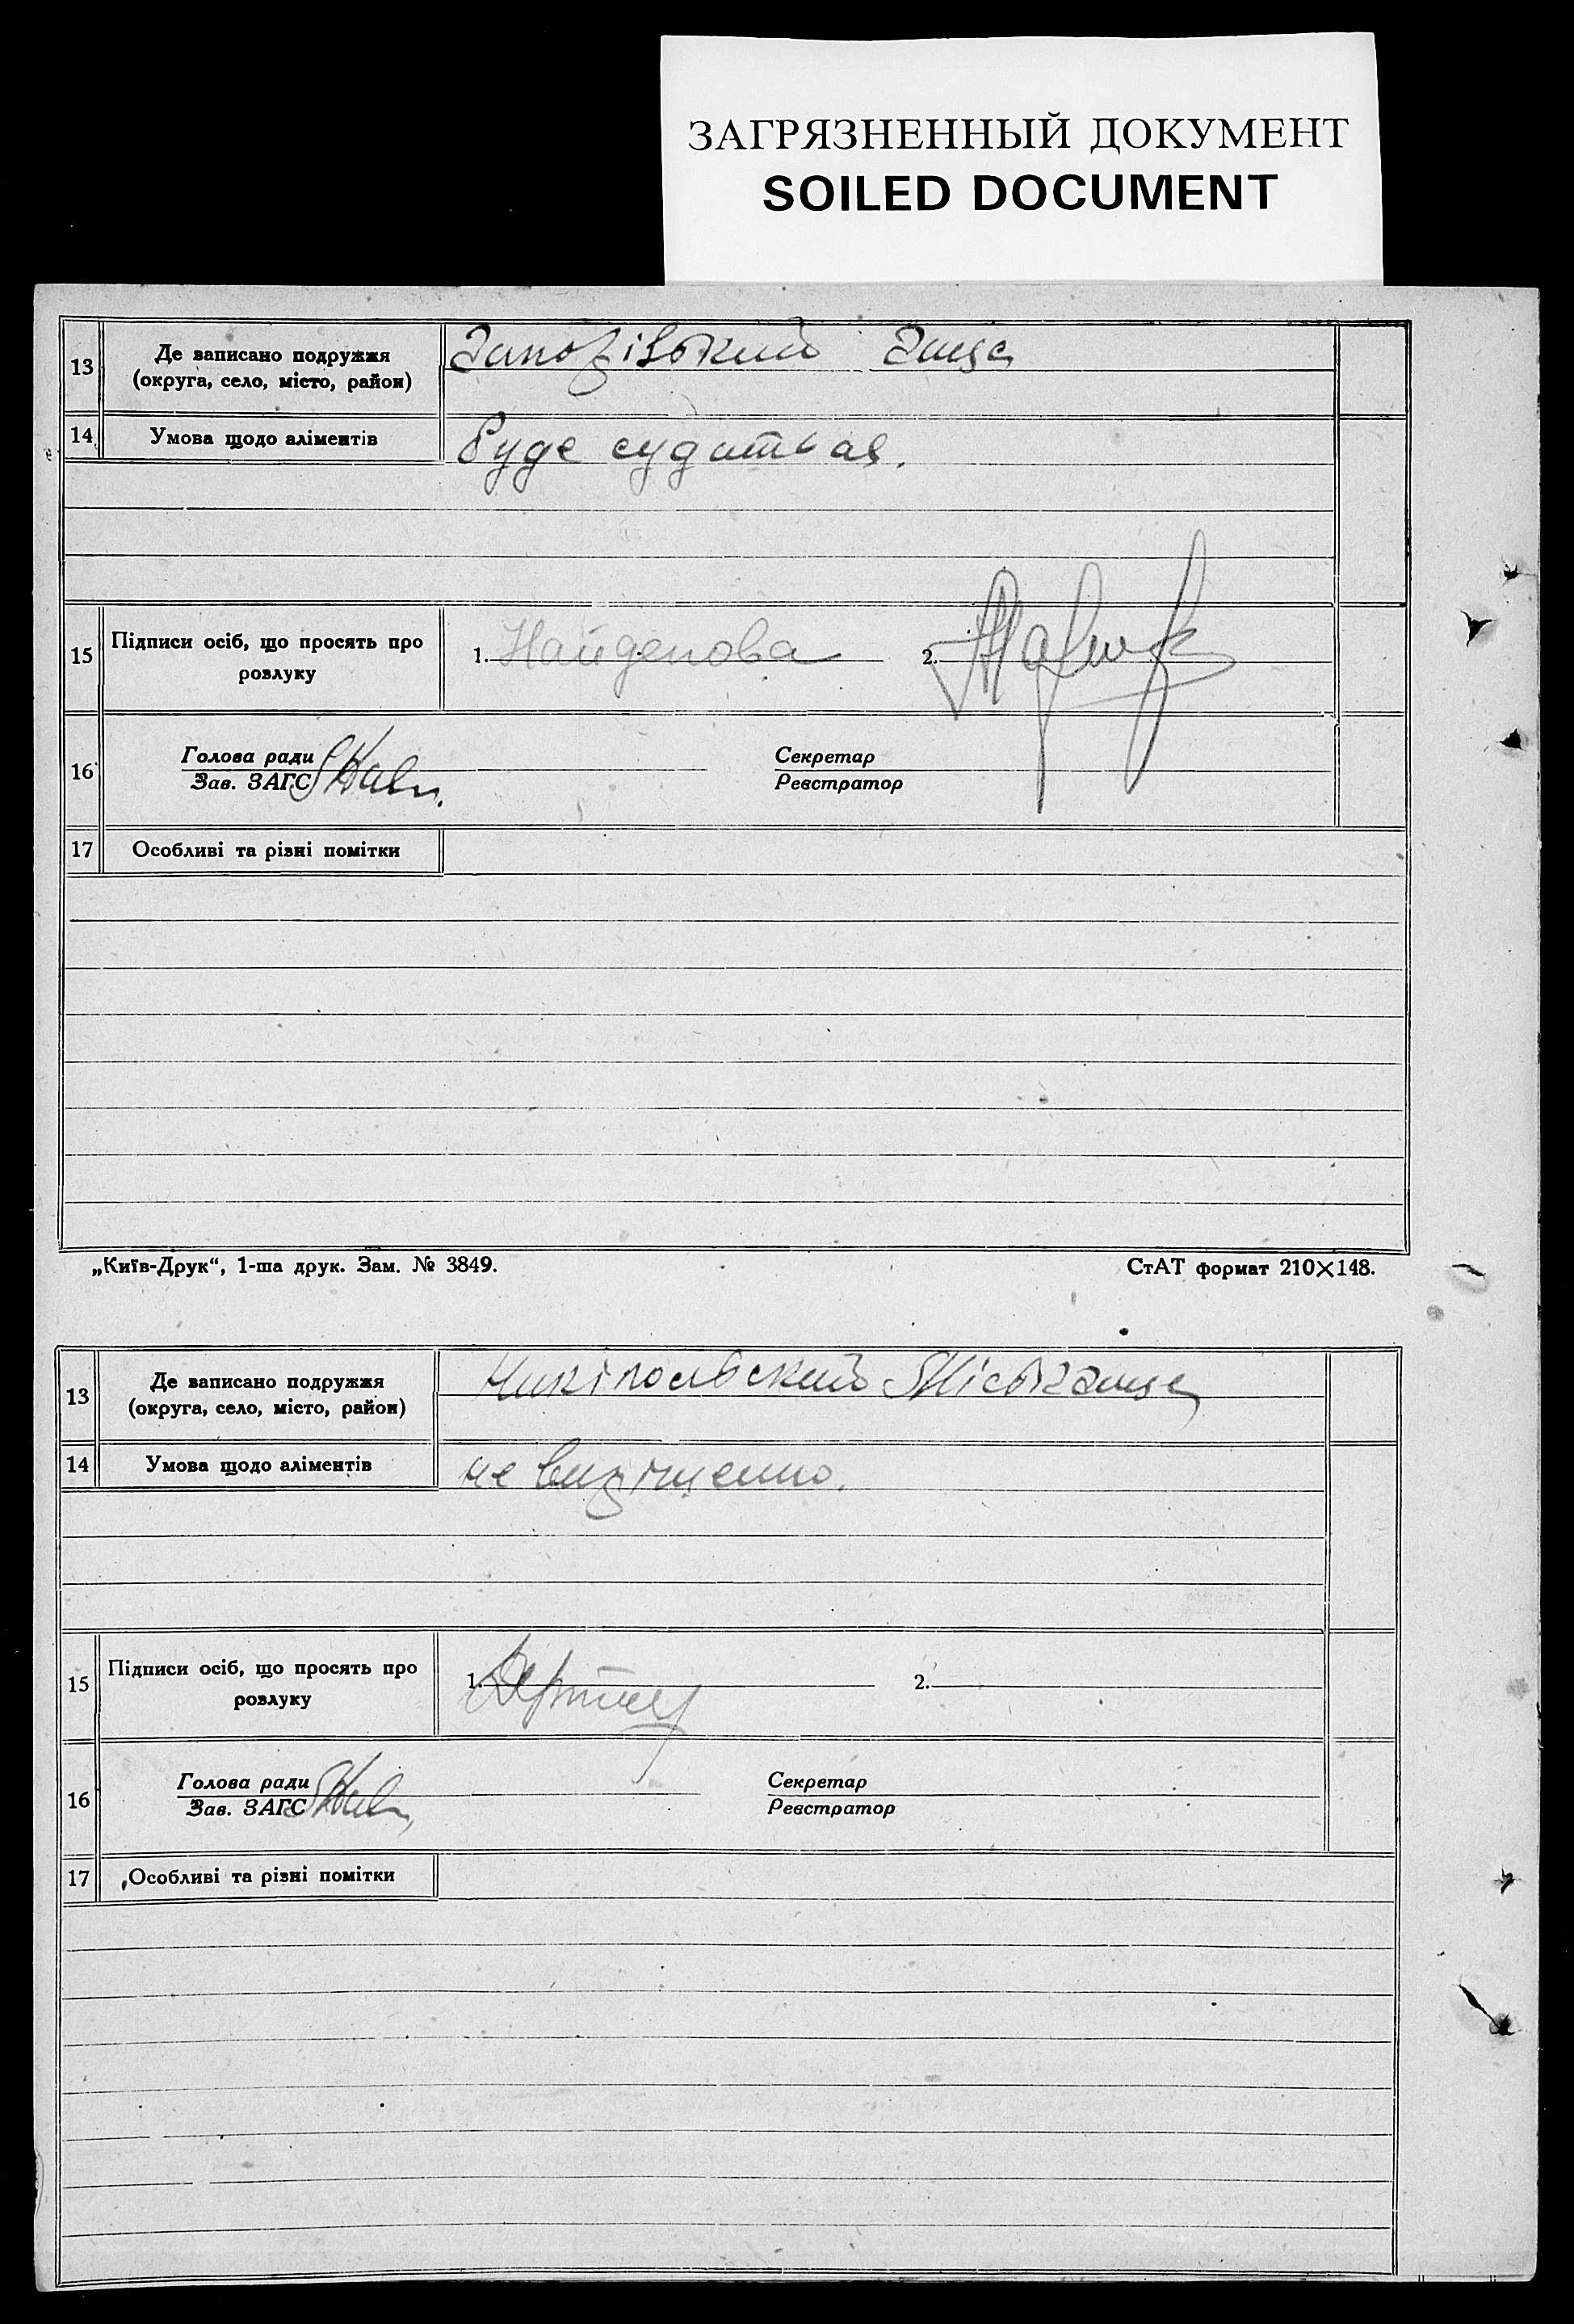 ЗАГРЯЗНЕННЫЙ ДОКУМЕНТ
SOILED DOCUMENT
13 Де записано подружжя
(округа, село, місто, район)
14 Умова щодо аліментів
Буде судиться.
15 Підписи осіб, що просять про
розлуку
1. Найденова 2.
16
Голова ради Секретар
Зав. ЗАГС Реєстратор
17 Особливі та різні помітки
„Київ-Друк“, 1-ша друк. Зам. № 3849. СтАТ формат 210×148.
13 Де записано подружжя
(округа, село, місто, район)
14 Умова щодо аліментів
не вирішенно.
15 Підписи осіб, що просять про
розлуку
1. 2.
16
Голова ради Секретар
Зав. ЗАГС Реєстратор
17 Особливі та різні помітки